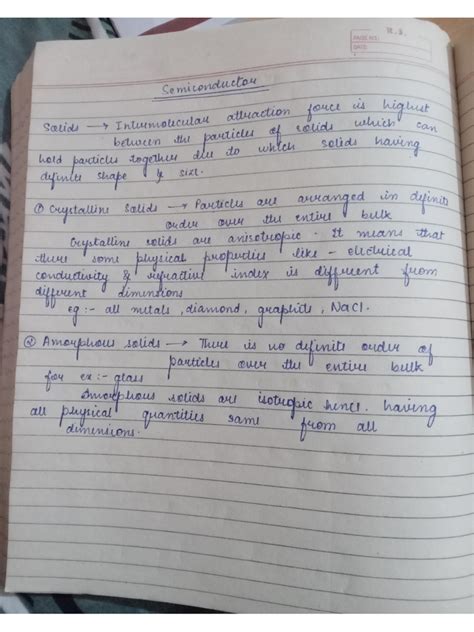 PAGE NO.
DATE
Semiconductor
Solids → Intermolecular attraction force is highest
between the particles of solids which can
hold particles together due to which solids having
definite shape & size.
① Crystalline Solids → Particles are arranged in definite
order over the entire bulk
Crystalline solids are anisotropic - It means that
there some physical properties like - electrical
conductivity & refractive index is different from
different dimensions
eg :- all metals, diamond, graphite, NaCl.
② Amorphous solids → There is no definite order of
particles over the entire bulk
for ex :- glass
Amorphous solids are isotropic hence. having
all physical quantities same from all
dimensions.